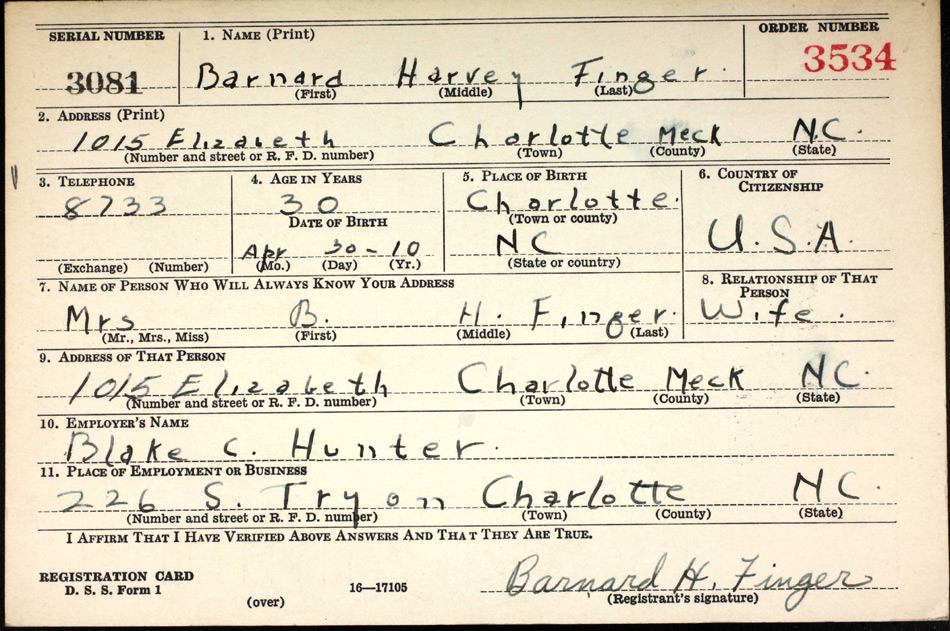 SERIAL NUMBER 1. NAME (Print) ORDER NUMBER
3081 Barnard Harvey Finger. 3534
(First) (Middle) (Last)
2. ADDRESS (Print)
1015 Elizabeth Charlotte Meck N.C.
(Number and street or R. F. D. number) (Town) (County) (State)
3. TELEPHONE 4. AGE IN YEARS 5. PLACE OF BIRTH 6. COUNTRY OF CITIZENSHIP
8733 30 Charlotte.
DATE OF BIRTH (Town or county)
Apr 30-10 NC U.S.A.
(Exchange) (Number) (Mo.) (Day) (Yr.) (State or country)
7. NAME OF PERSON WHO WILL ALWAYS KNOW YOUR ADDRESS 8. RELATIONSHIP OF THAT PERSON
Mrs B. H. Finger. Wife.
(Mr., Mrs., Miss) (First) (Middle) (Last)
9. ADDRESS OF THAT PERSON
1015 Elizabeth Charlotte Meck NC.
(Number and street or R. F. D. number) (Town) (County) (State)
10. EMPLOYER'S NAME
Blake C. Hunter.
11. PLACE OF EMPLOYMENT OR BUSINESS
226 S. Tryon Charlotte NC.
(Number and street or R. F. D. number) (Town) (County) (State)
I AFFIRM THAT I HAVE VERIFIED ABOVE ANSWERS AND THAT THEY ARE TRUE.
REGISTRATION CARD
D. S. S. Form 1 16—17105 Barnard H. Finger
(over) (Registrant's signature)